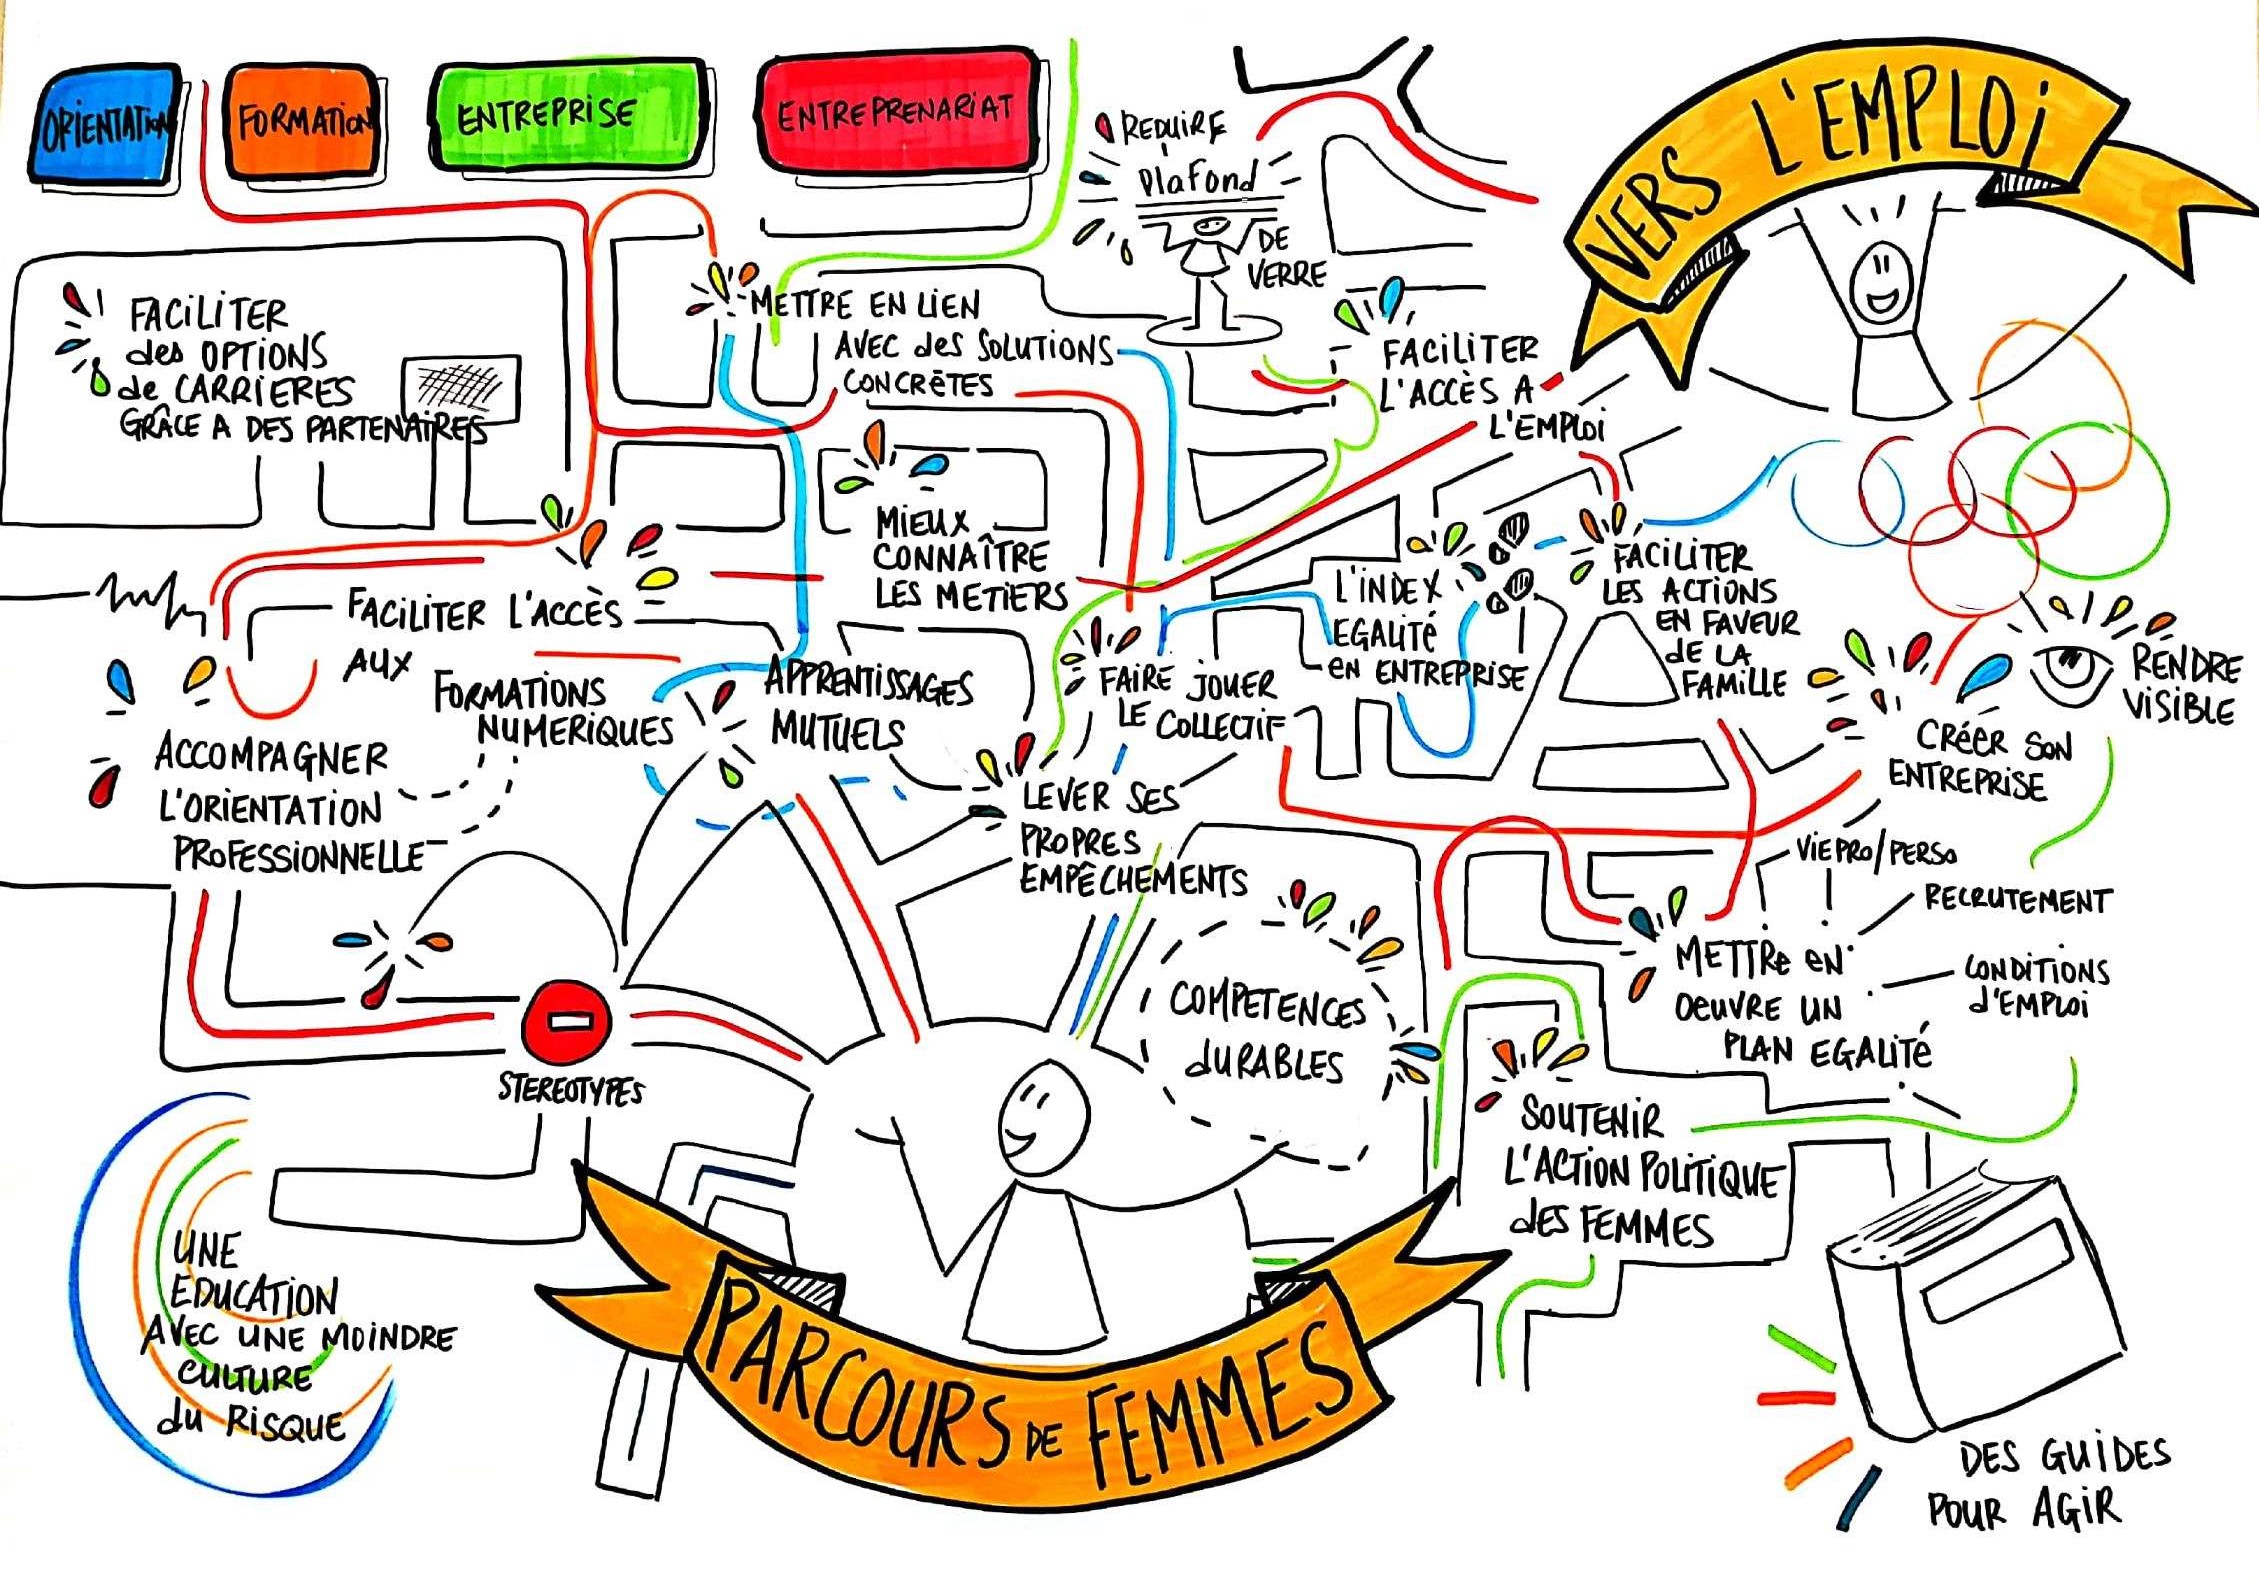 ORIENTATION
FORMATION
ENTREPRISE
ENTREPRENARIAT
REDUIRE
Plafond
DE
VERRE
VERS L'EMPLOI
FACILITER
des OPTIONS
de CARRIERES
GRÂCE A DES PARTENAIRES
METTRE EN LIEN
AVEC des SOLUTIONS
CONCRÈTES
FACILITER
L'ACCÈS A
L'EMPLOI
MIEUX
CONNAÎTRE
LES METIERS
L'INDEX
EGALITÉ
EN ENTREPRISE
FACILITER
LES ACTIONS
EN FAVEUR
DE LA
FAMILLE
FACILITER L'ACCÈS
AUX
FORMATIONS
NUMERIQUES
APPRENTISSAGES
MUTUELS
FAIRE JOUER
LE COLLECTIF
RENDRE
VISIBLE
CRÉER SON
ENTREPRISE
ACCOMPAGNER
L'ORIENTATION
PROFESSIONNELLE
LEVER SES
PROPRES
EMPÊCHEMENTS
VIE PRO/PERSO
RECRUTEMENT
METTRE EN
OEUVRE UN
PLAN EGALITÉ
CONDITIONS
d'EMPLOI
COMPETENCES
dURABLES
STEREOTYPES
SOUTENIR
L'ACTION POLITIQUE
dES FEMMES
UNE
EDUCATION
AVEC UNE MOINDRE
CULTURE
du RISQUE
PARCOURS DE FEMMES
DES GUIDES
POUR AGIR